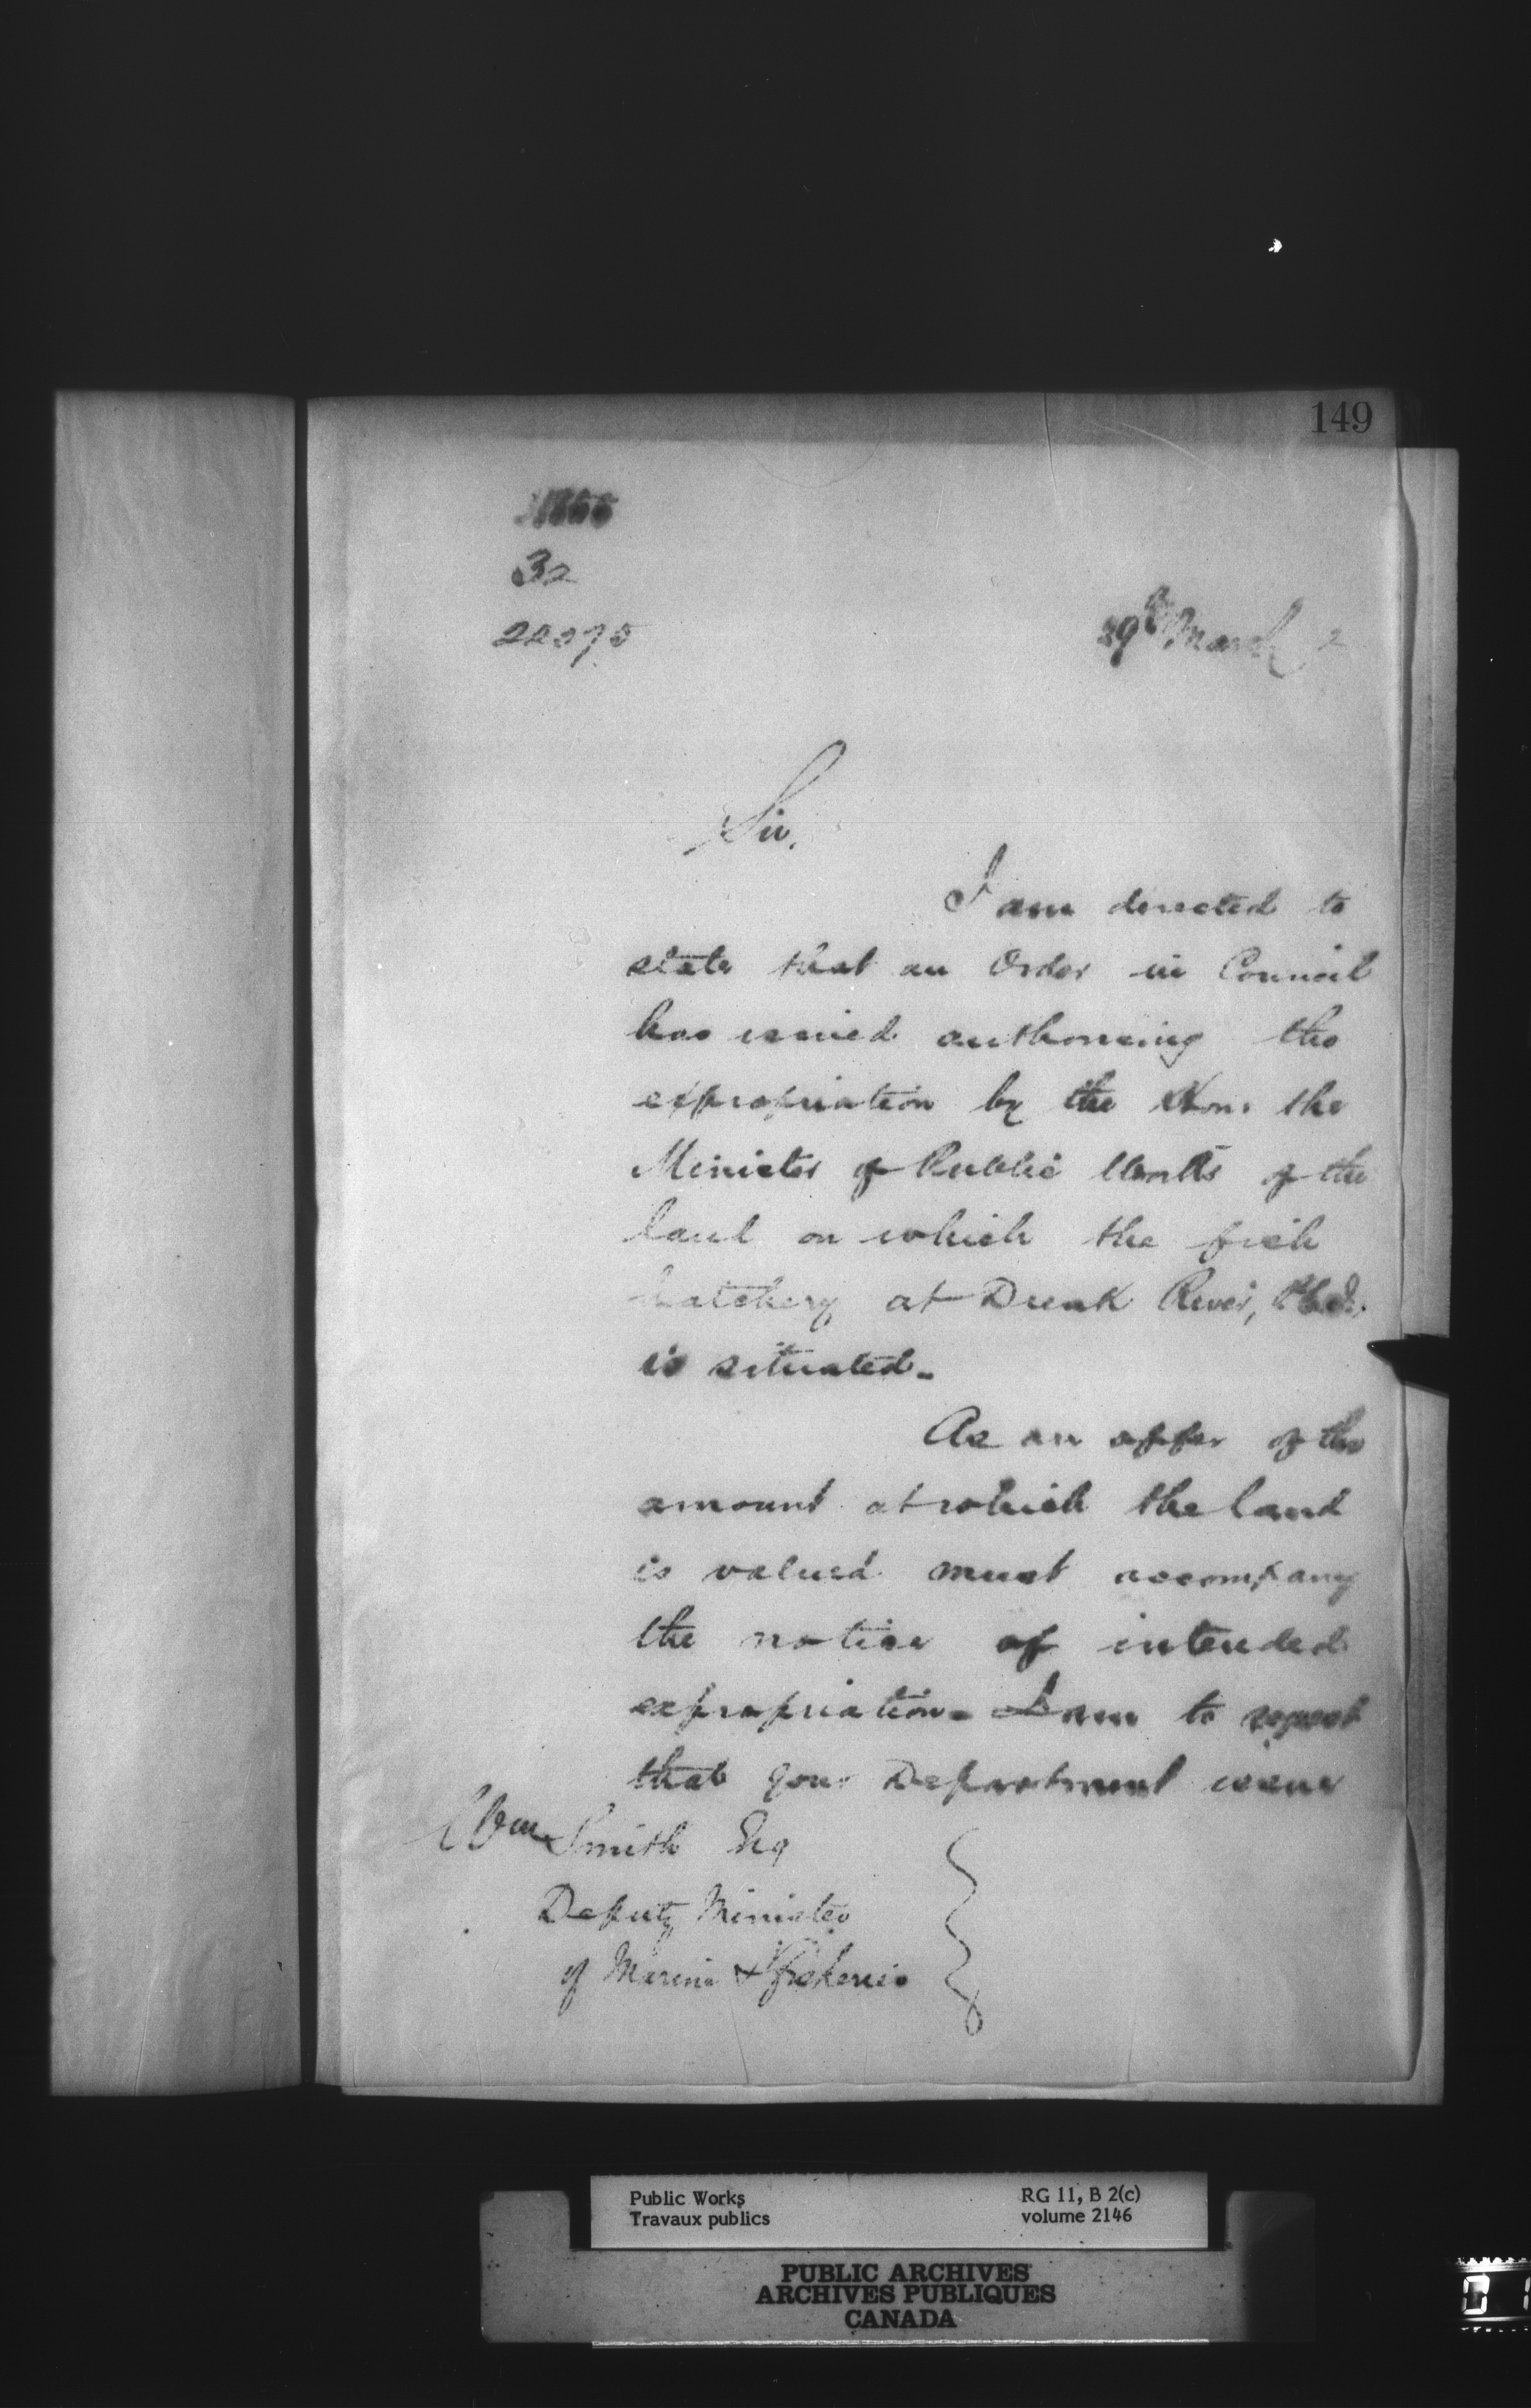 149
32
22375
29th March 2
Sir,
I am directed to
state that an Order in Council
has issued authorising the
expropriation by the Hon. the
Minister of Public Works of the
land on which the fish
hatchery at Dunk River,
is situated.
As an offer of the
amount at which the land
is valued must accompany
the notice of intended
expropriation I am to request
that your Department
Wm Smith Esq
Deputy Minister
of Marine & Fisheries
Public Works
Travaux publics
RG 11, B 2(c)
volume 2146
PUBLIC ARCHIVES
ARCHIVES PUBLIQUES
CANADA